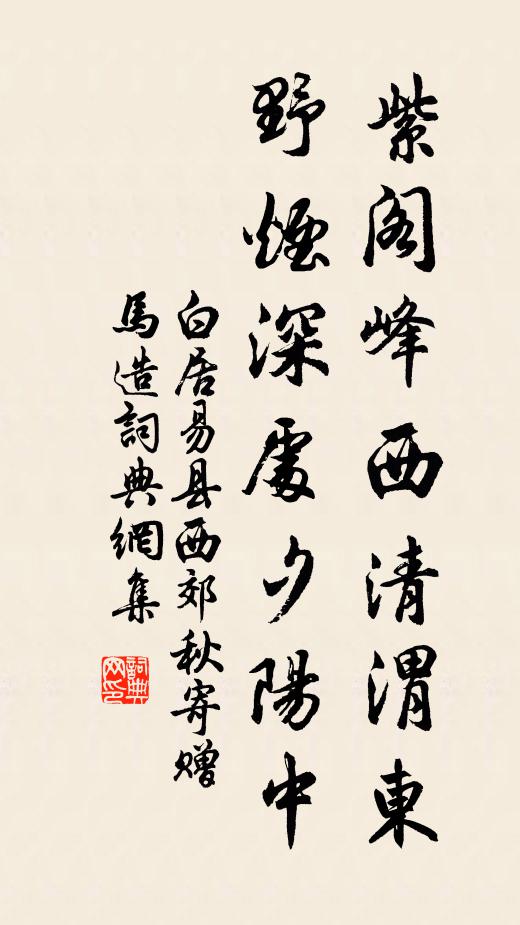 紫阁峰西清渭東
野煙深處夕陽中
白居易县西郊秋寄赠
馬造詞典網集
詞典网印